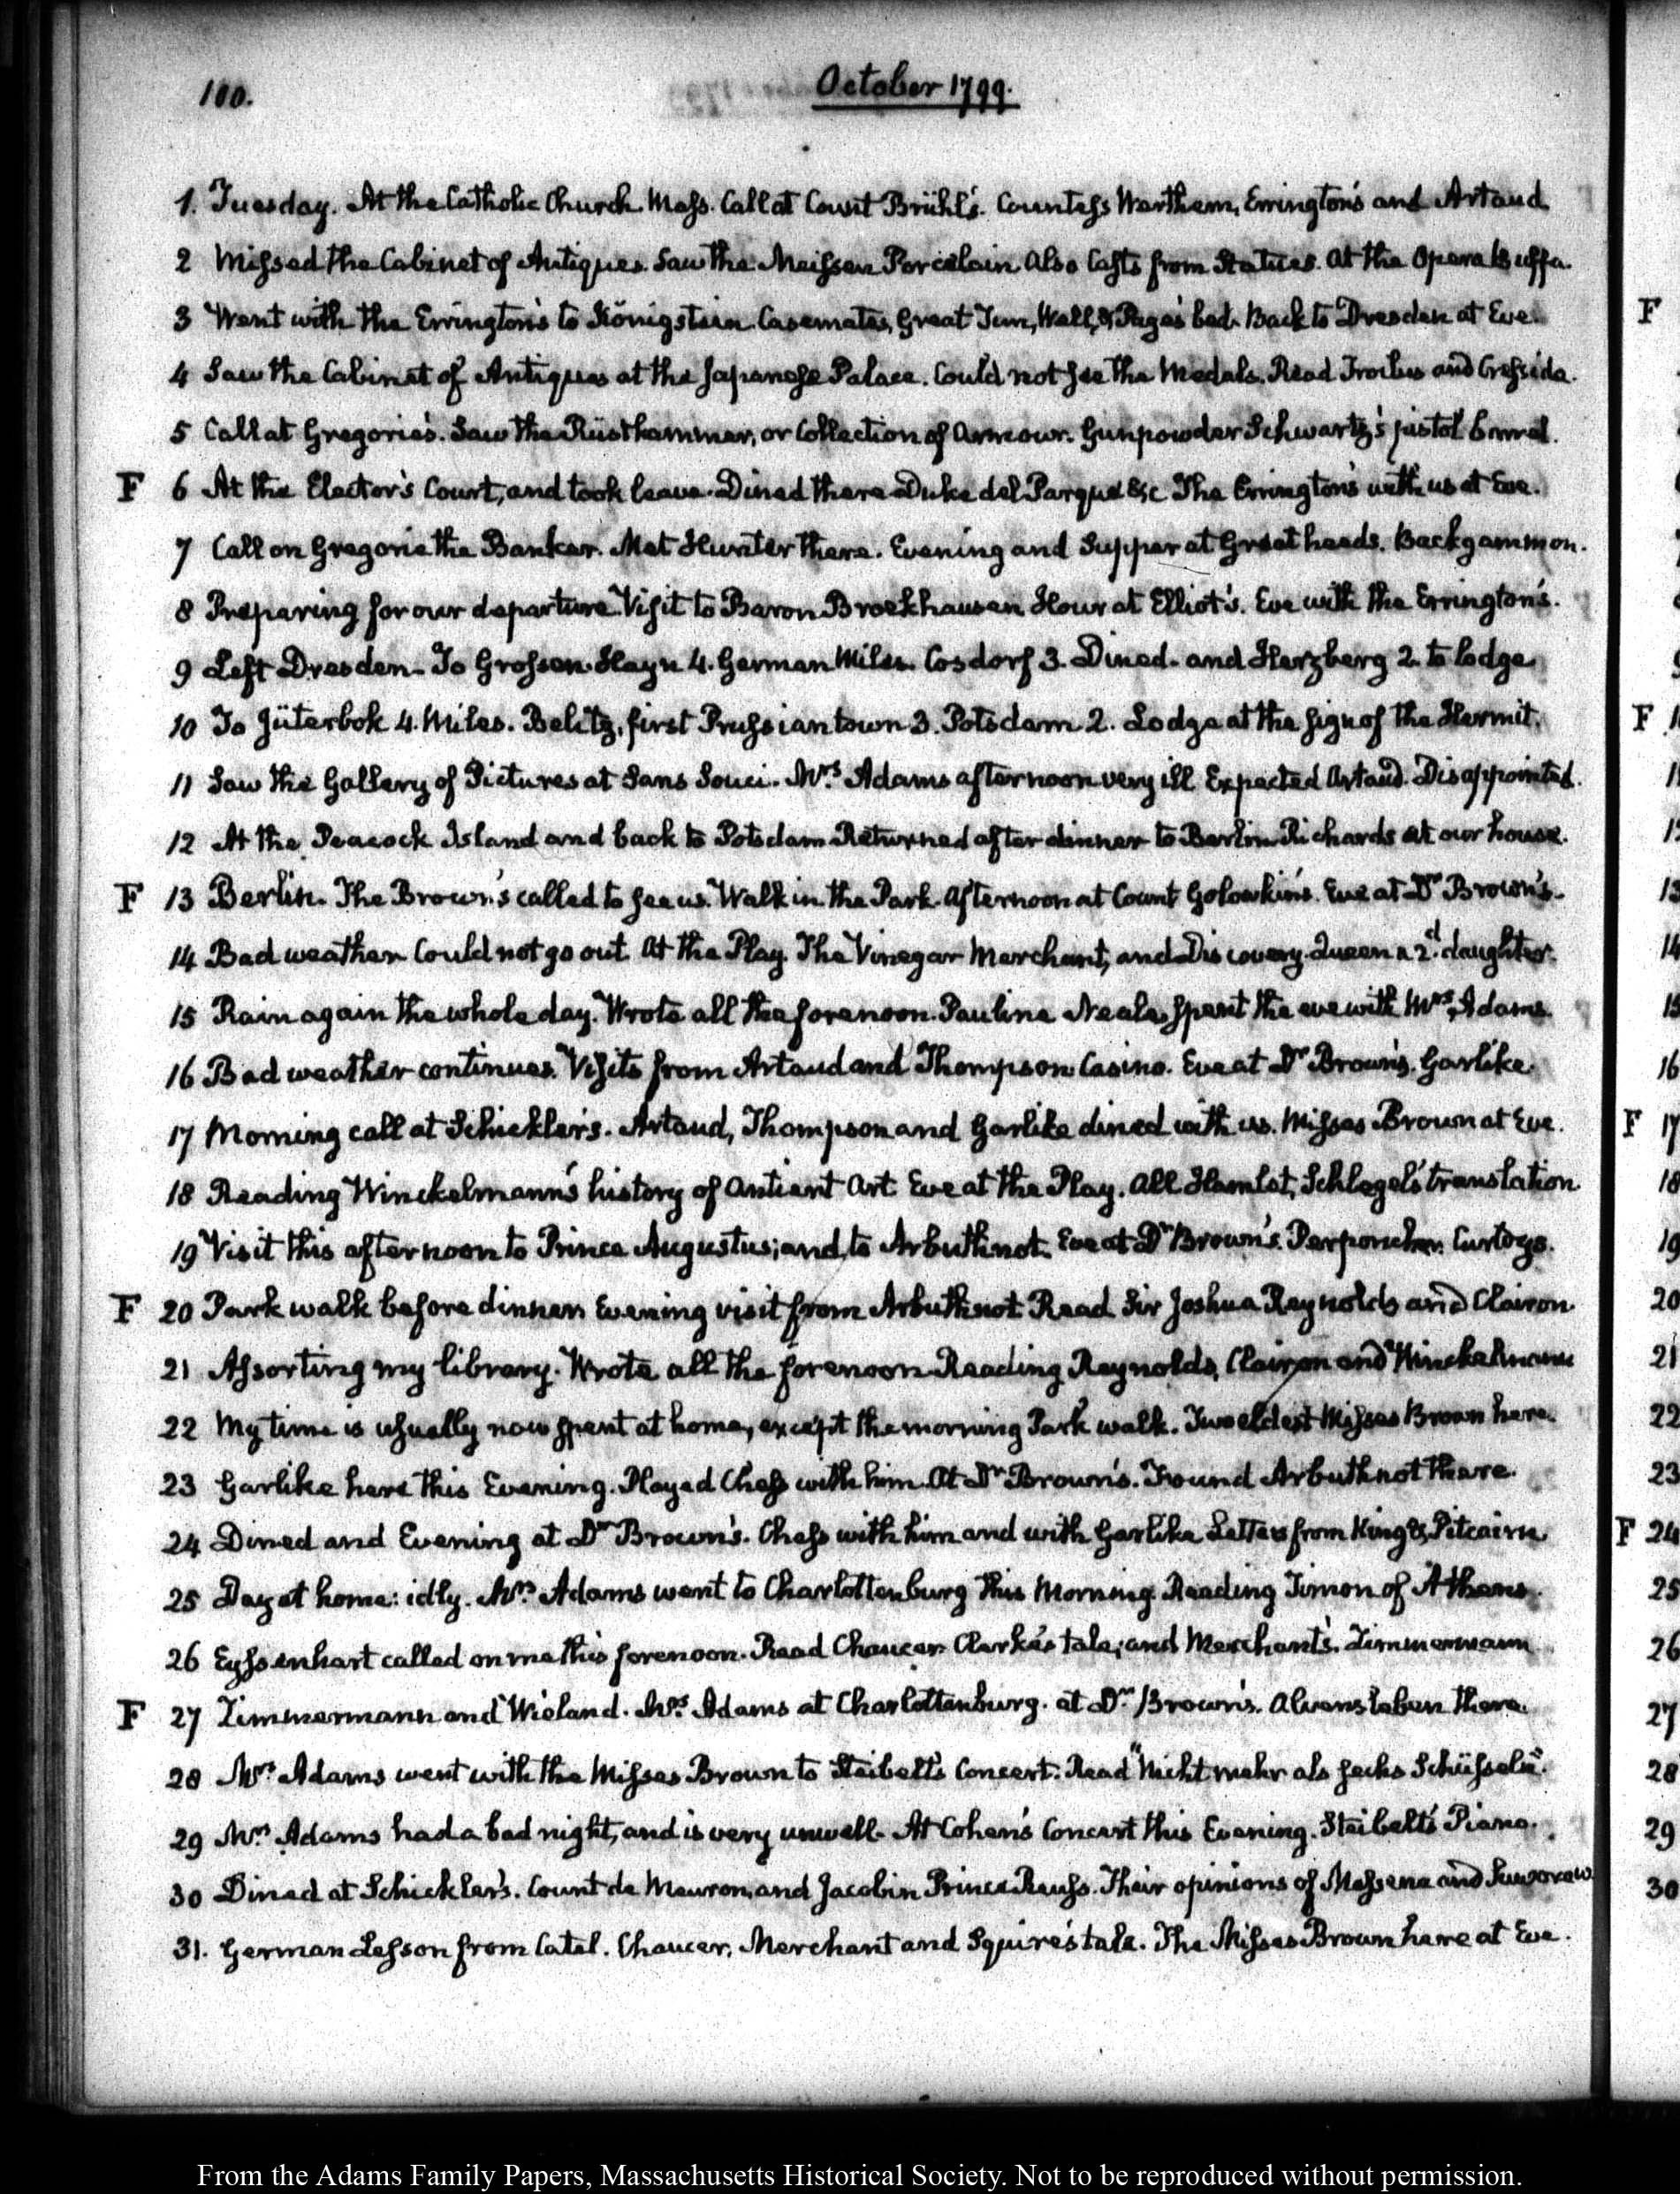 100.
October 1799.
1. Tuesday. At the Catholic Church. Mass. Call at Count Brühl's. Countess Werthern, Errington's and Artaud
2 Missed the Cabinet of Antiques. Saw the Meissen Porcelain also Casts from Statues. At the Opera Buffa.
3 Went with the Errington's to Königstein. Casemates, Great Tun, Well, & Page's bed. Back to Dresden at Eve.
F
4 Saw the Cabinet of Antiques at the Japanese Palace. Could not see the Medals. Read Troilus and Cressida.
5 Call at Gregorie's. Saw the Rüstkammer, or Collection of armour. Gunpowder Schwartz's pistol barrel.
F 6 At the Elector's Court, and took leave. Dined there Duke del Parque &c The Errington's with us at Eve.
7 Call on Gregorie the Banker. Met Hunter there. Evening and Supper at Greatheads. Backgammon.
8 Preparing for our departure Visit to Baron Brockhausen Hour at Elliot's. Eve with the Errington's.
9 Left Dresden. To Grossen-Hayn 4. German Miles. Cosdorf 3. Dined. and Herzberg 2. to lodge
10 To Jüterbok 4. Miles. Belitz, first Prussian town 3. Potsdam 2. Lodge at the sign of the Hermit.
F
11 Saw the Gallery of Pictures at Sans Souci. Mrs. Adams afternoon very ill Expected Artaud. Disappointed.
12 At the Peacock Island and back to Potsdam Returned after dinner to Berlin. Richards at our house.
F 13 Berlin. The Brown's called to see us. Walk in the Park. Afternoon at Count Golowkin's. Eve at Dr Brown's.
14 Bad weather Could not go out. At the Play. The Vinegar Merchant, and Discovery. Queen a 2d. daughter.
15 Rain again the whole day. Wrote all the forenoon. Pauline Neale spent the eve with Mrs. Adams.
16 Bad weather continues. Visits from Artaud and Thompson Casino. Eve at Dr Brown's. Garlike.
17 Morning call at Schickler's. Artaud, Thompson and Garlike dined with us. Misses Brown at Eve.
F 17
18 Reading Winckelmann's history of Antient Art. Eve at the Play. All Hamlet, Schlegel's translation
18
19 Visit this afternoon to Prince Augustus; and to Arbuthnot. Eve at Dr Brown's. Perponcher. Curtoys.
19
F 20 Park walk before dinner. Evening visit from Arbuthnot Read Sir Joshua Reynolds and Clairon.
20
21 Assorting my library. Wrote all the forenoon. Reading Reynolds, Clairon and Winckelmann
21
22 My time is usually now spent at home, except the morning Park walk. Two eldest Misses Brown here.
22
23 Garlike here this Evening. Played Chess with him. At Dr Brown's. Found Arbuthnot there.
23
24 Dined and Evening at Dr Brown's. Chess with him and with Garlike Letters from King & Pitcairn
F 24
25 Day at home: idly. Mrs. Adams went to Charlottenburg this Morning. Reading Timon of Athens.
25
26 Eyssenhart called on me this forenoon. Read Chaucer. Clarke's tale; and Merchant's. Zimmermann
26
F 27 Zimmermann and Wieland. Mrs. Adams at Charlottenburg. at Dr. Brown's. Alvensleben there.
27
28 Mrs. Adams went with the Misses Brown to Steibelt's Concert. Read "Nicht mehr als sechs Schüsseln".
28
29 Mrs. Adams had a bad night, and is very unwell. At Cohen's Concert this Evening. Steibelt's Piano.
29
30 Dined at Schickler's. Count de Meuron, and Jacobin Prince Reuss. Their opinions of Massena and Suworow
30
31. German Lesson from Catel. Chaucer, Merchant and Squire's tale. The Misses Brown here at Eve.
From the Adams Family Papers, Massachusetts Historical Society. Not to be reproduced without permission.